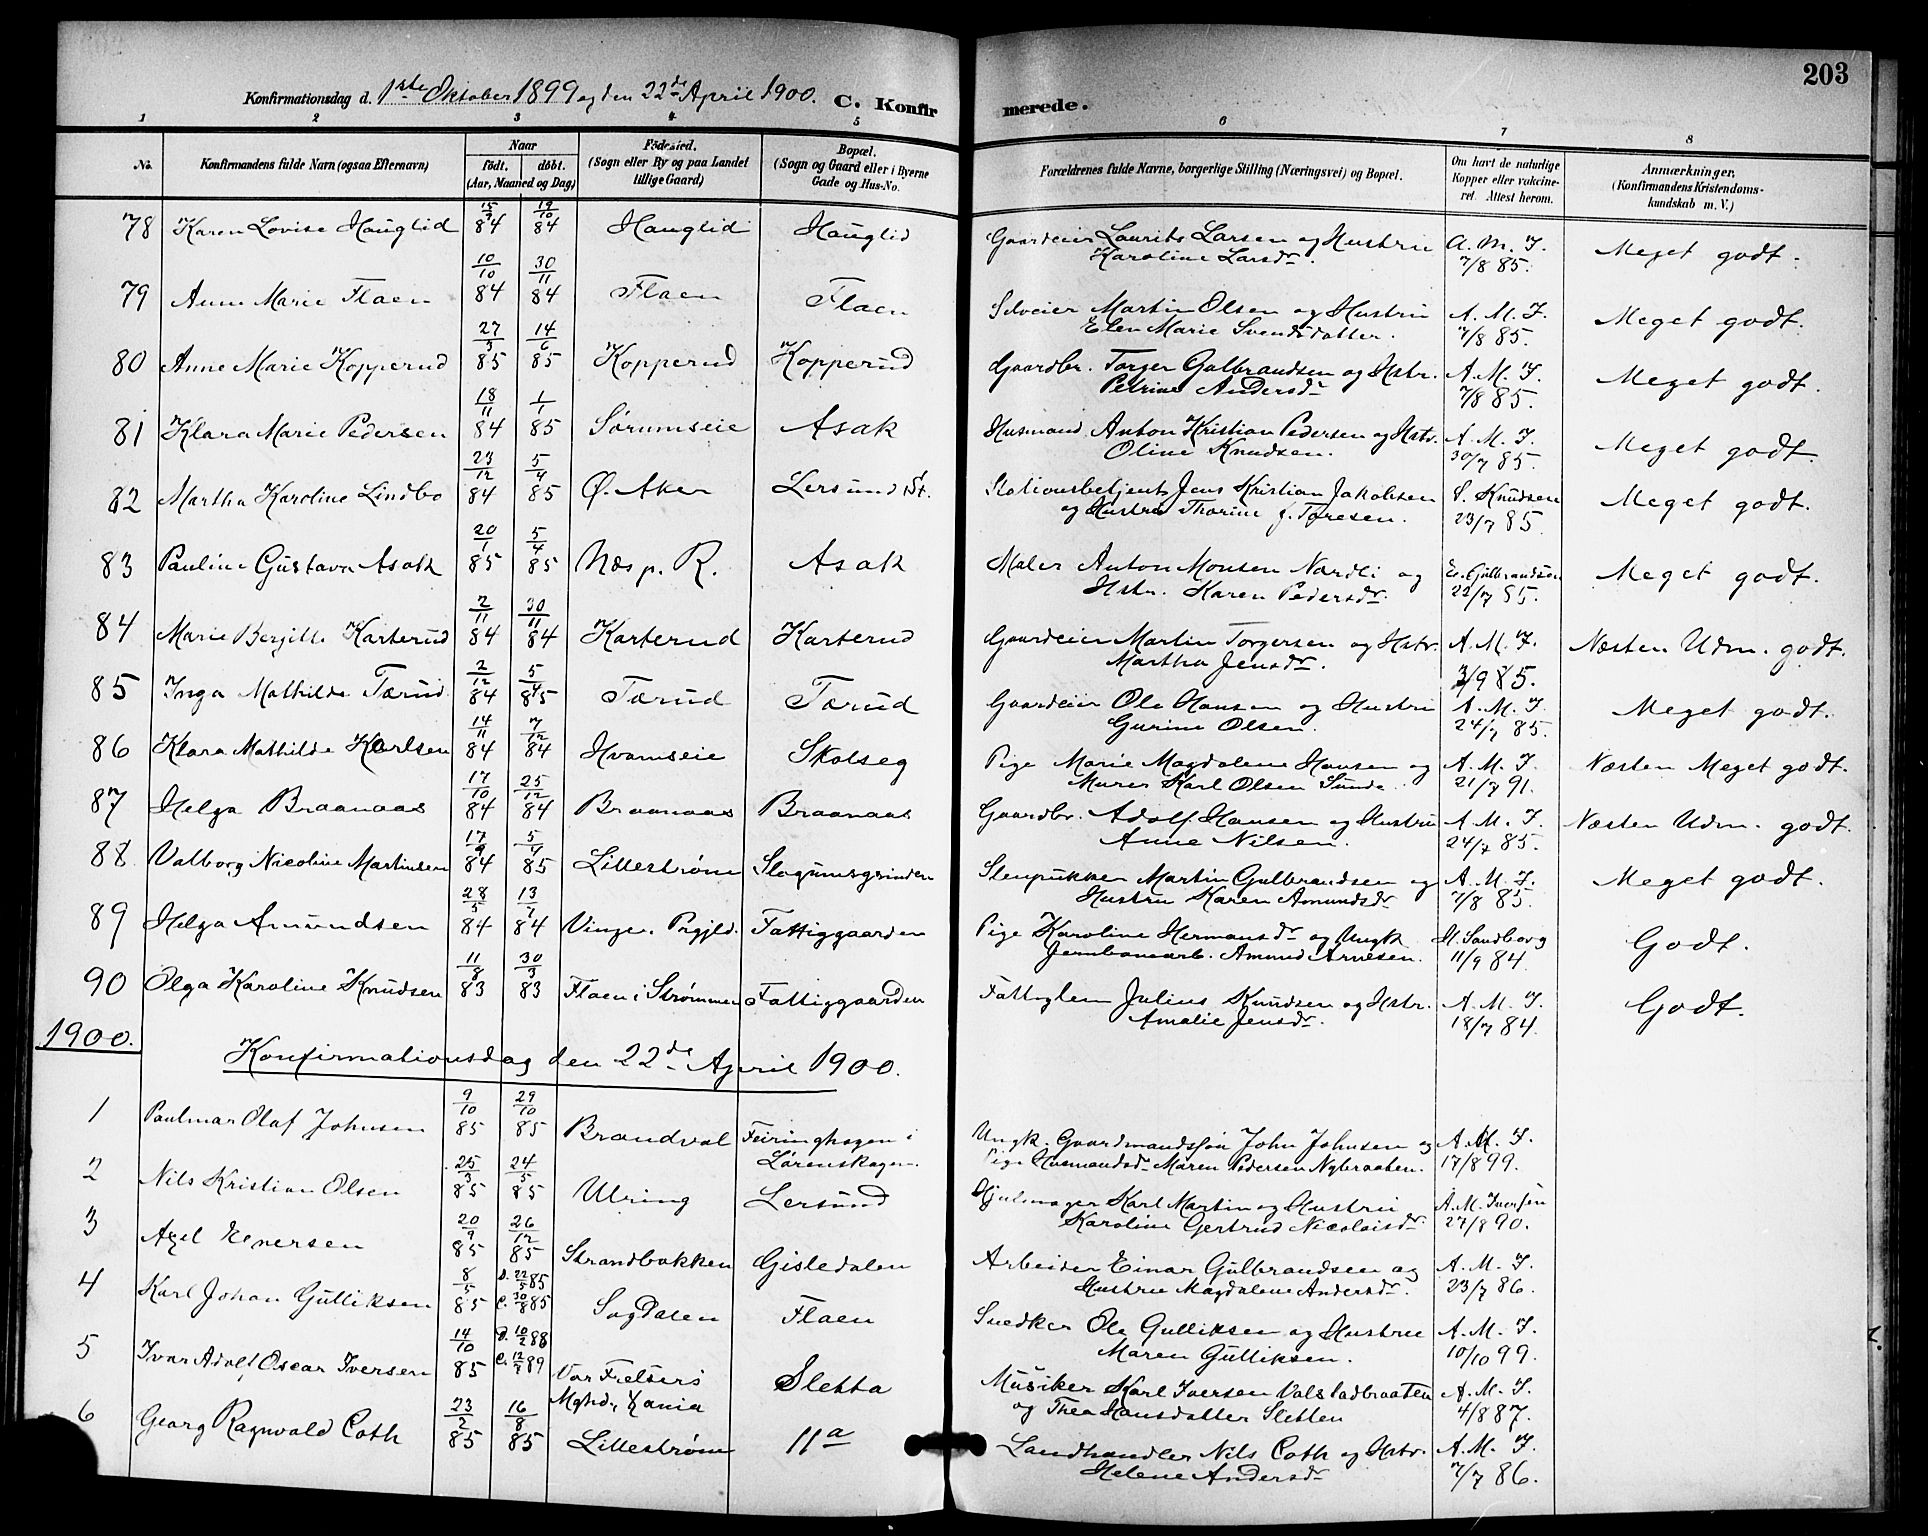 203
Konfirmationsdag d. 1ste Oktober 1899 og den 22de April 1900. C. Konfirmerede.
1 2 3 4 5 6 7 8
No. Konfirmandens fulde Navn (ogsaa Efternavn) Naar født. døbt. (Aar, Maaned og Dag) Fødested. (Sogn eller By og paa Landet tillige Gaard) Bopæl. (Sogn og Gaard eller i Byerne Gade og Hus-No. Forældrenes fulde Navne, borgerlige Stilling (Næringsvei) og Bopæl. Om havt de naturlige Kopper eller vaccineret. Attest herom. Anmærkninger. (Konfirmandens Kristendomskundskab m. V.)
78 Karen Lovise Hauglid 15/9 84 19/10 84 Hauglid Hauglid Gaardeier Laurits Larsen og Hustru Karoline Larsdr. A. M. I. 7/8 85. Meget godt.
79 Anne Marie Flaen 10/10 84 30/11 84 Flaen Flaen Selveier Martin Olsen og Hustru Elen Marie Svendsdatter. A. M. I. 7/8 85. Meget godt.
80 Anne Marie Kopperud 27/3 85 14/6 85 Kopperud Kopperud Gaardbr. Torger Gulbrandsen og Hstr. Petrine Andersdr A. M. I. 7/8 85. Meget godt.
81 Klara Marie Pedersen 18/11 84 1/1 85 Sørumseie Asak Husmand Anton Kristian Pedersen og Hstr. Oline Knudsen. A. M. I. 30/7 85. Meget godt.
82 Martha Karoline Lindbo 23/12 84 5/4 85 Ø. Aker Lersund St. Stationsbetjent Jens Kristian Jakobsen og Hustru Thorine f. Toresen. Knudsen 23/7 85. Meget godt.
83 Pauline Gustava Asak 20/1 85 5/4 85 Næs p. R. Asak Maler Anton Monsen Nordli og Hstr. Karen Pedersdr. Gulbrandsen 22/7 85. Meget godt.
84 Marie Bergitte Karterud 2/11 84 30/11 84 Karterud Karterud Gaardeier Martin Torgersen og Hstr. Martha Jensdr. A. M. I. 3/9 85. Næsten Udm. godt.
85 Inga Mathilde Tærud 2/12 84 5/4 85 Tærud Tærud Gaardeier Ole Hansen og Hustru Gurine Olsen. A. M. I. 24/7 85. Meget godt.
86 Klara Mathilde Karlsen 14/11 84 7/12 84 Hvamseie Skolseg Pige Marie Magdalene Hansen og Murer Karl Olsen Sunde. A. M. I. 21/7 91. Næsten Meget godt.
87 Helga Braanaas 17/10 84 25/12 84 Braanaas Braanaas Gaardbr. Adolf Hansen og Hustru Anne Nilsen. A. M. I. 24/7 85. Næsten Udm. godt.
88 Valborg Nicoline Martinsen 17/9 84 5/4 85 Lillestrøm Slogumsgrinden Stenpukker Martin Gulbrandsen og Hustru Karen Amundsdr A. M. I. 7/8 85. Meget godt.
89 Helga Amundsen 28/5 84 13/7 84 Vinger Prgjld. Fattiggaarden Pige Karoline Hermansdr og Ungk. Jernbanearb. Amund Arnesen. H. Sandborg 11/9 84. Godt.
90 Olga Karoline Knudsen 11/8 83 30/3 83 Flaen i Strømmen Fattiggaarden Fattiglem Julius Knudsen og Hstr. Amalie Jensdr. A. M. I. 18/7 84. Godt.
1900.
Konfirmationsdag den 22de April 1900.
1 Paulmar Olaf Johnsen 9/10 85 29/10 85 Brandval Feiringhagen i Lørenskogen. Ungk. Gaardmandssøn John Johnsen og Pige Husmandsd. Maren Pedersen Nybraaten. A. M. I. 17/8 99.
2 Nils Kristian Olsen 25/3 85 24/5 85 Ulring Lersund Hjulmager Karl Martin og Hustru Karoline Gertrud Nicolaisdr A. M. Iversen 27/8 90.
3 Axel Einersen 20/9 85 26/12 85 Strandbakken Gisledalen Arbeider Einar Gulbrandsen og Hustru Magdalene Andersdr. A. M. I. 23/7 86.
4 Karl Johan Gulliksen 8/5 85 D. 22/5 85 C. 30/8 85 Sagdalen Flaen Snedker Ole Gulliksen og Hustru Maren Gulliksen. A. M. I. 10/10 99.
5 Ivar Adolf Oscar Iversen 14/10 85 D. 10/2 88 C. 12/7 89 Vor Frelsers Mghd. Xania Sletta Musiker Karl Iversen Valstadbraaten og Thea Hansdatter Sletten A. M. I. 4/8 87.
6 Georg Ragnvald Coth 23/2 85 16/8 85 Lillestrøm 11a Landhandler Nils Coth og Hstr. Helene Andersdr A. M. I. 7/7 86.